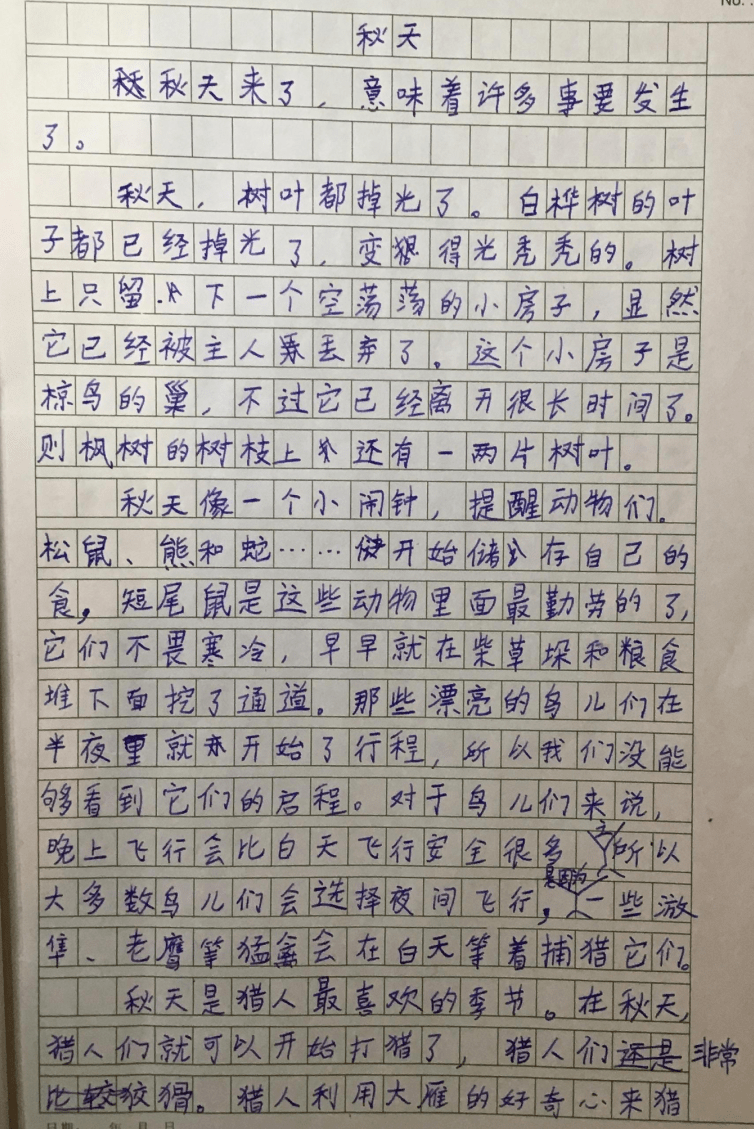 No.
秋天
秋天来了，意味着许多事要发生
了。
秋天，树叶都掉光了。白桦树的叶
子都已经掉光了，变得光秃秃的。树
上只留下一个空荡荡的小房子，显然
它已经被主人丢弃了。这个小房子是
椋鸟的巢，不过它已经离开很长时间了。
则枫树的树枝上还有一两片树叶。
秋天像一个小闹钟，提醒动物们。
松鼠、熊和蛇……开始储存自己的
食，短尾鼠是这些动物里面最勤劳的了，
它们不畏寒冷，早早就在柴草垛和粮食
堆下面挖了通道。那些漂亮的鸟儿们在
半夜里就开始了行程，所以我们没能
够看到它们的启程。对于鸟儿们来说，
晚上飞行会比白天飞行安全很多，所以
大多数鸟儿们会选择夜间飞行，是因为一些游
隼、老鹰等猛禽会在白天等着捕猎它们。
秋天是猎人最喜欢的季节。在秋天，
猎人们就可以开始打猎了，猎人们还是非常
比较狡猾。猎人利用大雁的好奇心来猎
日期： 年 月 日